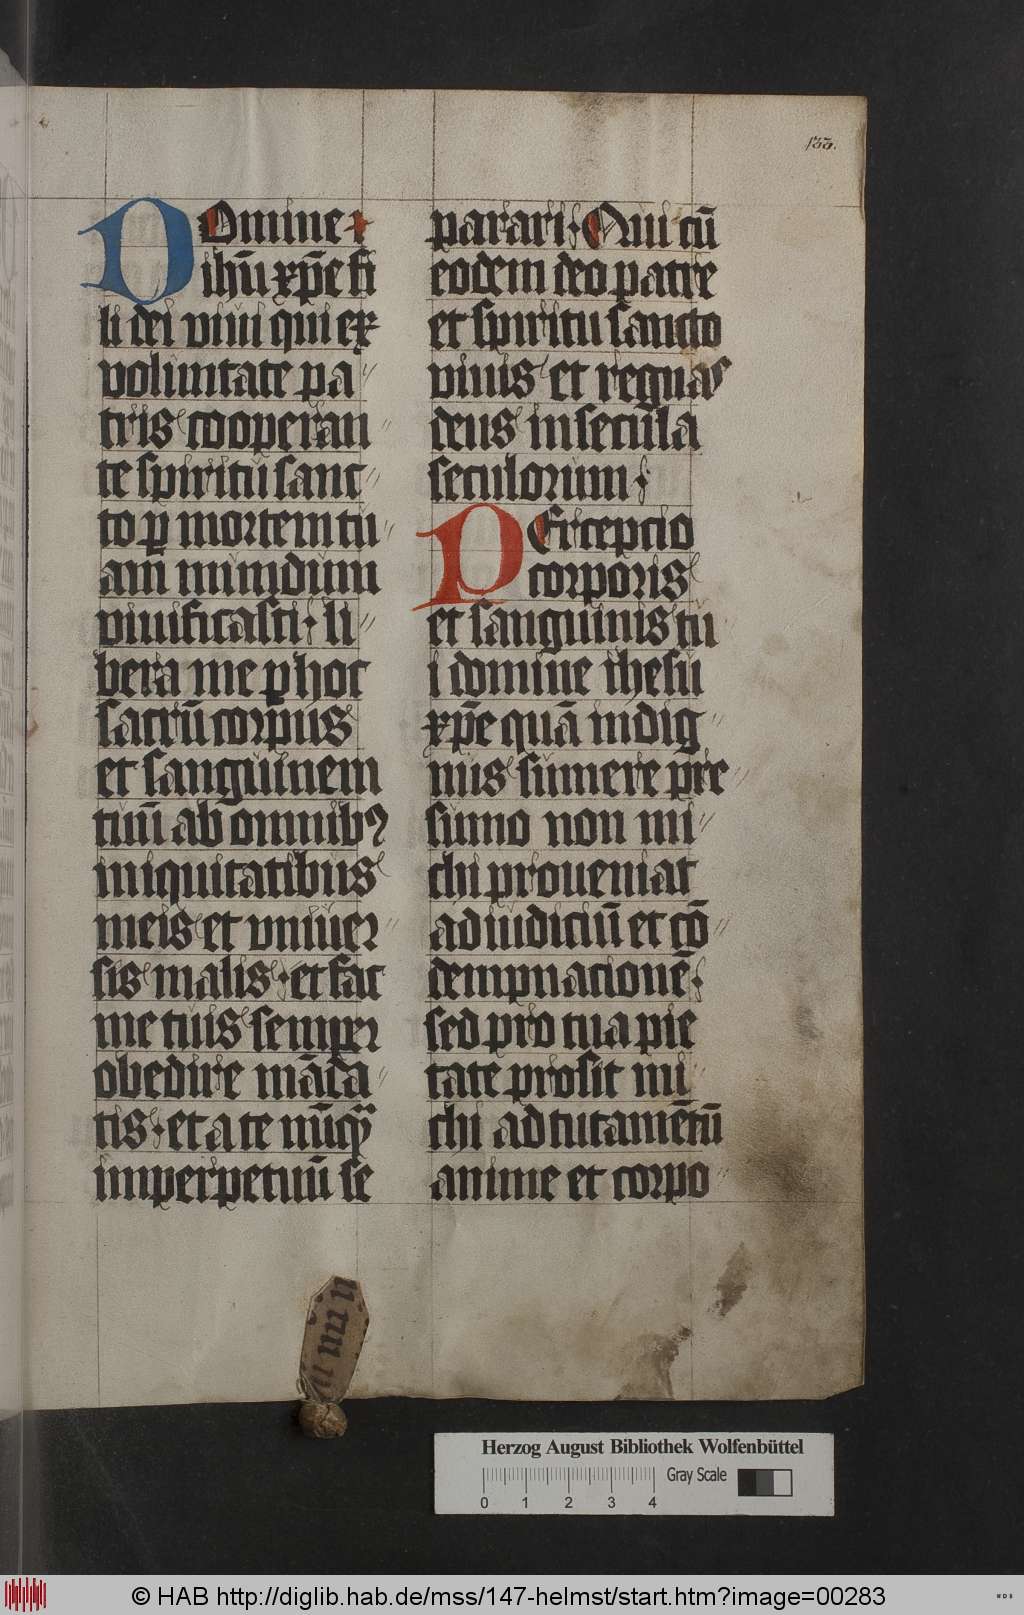 133.
Domine
ihū xp̄e fi
li dei viui qui ex
voluntate pa
tris cooperan
te spiritu sanc
to ꝑ mortem tu
am mundum
viuificasti · li
bera me ꝑ hoc
sacrū corpus
et sanguinem
tuū ab omnibꝰ
iniquitatibus
meis et vniuer
sis malis · et fac
me tuis semper
obedire mādа
tis · et a te nūqͣ
imperpetuū se
parari · Qui cū
eodem deo patre
et spiritu sancto
viuis et regnas
deus in secula
seculorum ·
Perceptio
corporis
et sanguinis tu
i domine ihesu
xp̄e quā indig
nus sumere pre
sumo non mi
chi proueniat
ad iudiciū et cō
dempnacionē
sed pro tua pie
tate prosit mi
chi ad tutamētū
anime et corpo
Herzog August Bibliothek Wolfenbüttel
Gray Scale
0 1 2 3 4
© HAB http://diglib.hab.de/mss/147-helmst/start.htm?image=00283